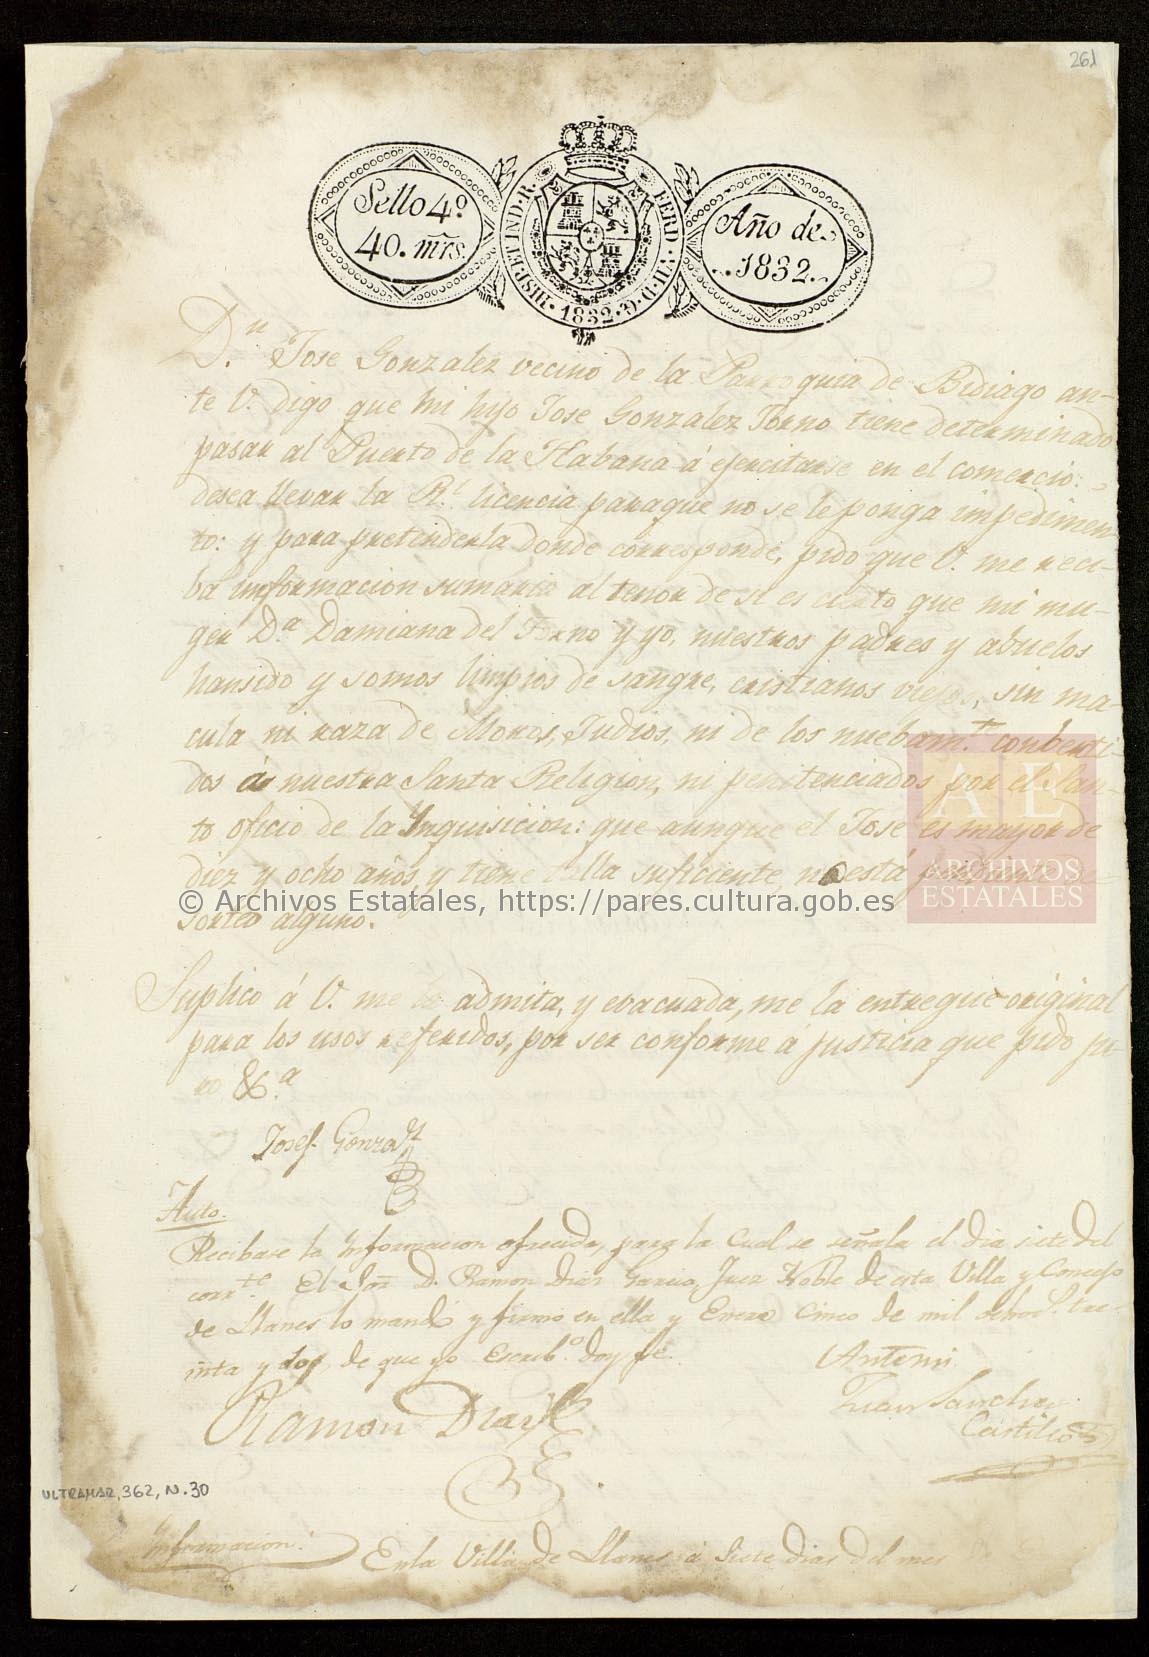 261
Sello 4º
40. mrs.
HISP. ET IND. R.
FERD. VII. D. G.
1832
Año de
1832.
D.n Jose Gonzalez vecino de la Parroquia de Bidiago an-
te V. digo que mi hijo Jose Gonzalez Torno tiene determinado
pasar al Puerto de la Habana á ejercitarse en el comercio:
desea llevar la R.l licencia paraque no se le ponga impedimen-
to: y para pretenderla donde corresponde, pido que V. me reci-
ba informacion sumaria al tenor de si es cierto que mi mu-
ger D.a Damiana del Torno y yo, nuestros padres y abuelos
hansido y somos limpios de sangre, cristianos viejos, sin ma-
cula ni raza de Moros, Judios, ni de los nuebam.te conberti-
dos á nuestra Santa Religion, ni penitenciados por el San-
to oficio de la Ynquisicion: que aunque el Jose es mayor de
diez y ocho años, y tiene talla suficiente, no está
sorteo alguno.
Suplico á V. me la admita, y evacuada, me la entregue original
para los usos referidos, por ser conforme á justicia que pido ju-
ro &.a
Josef Gonzalez
Auto.
Recibase la Informacion ofrecida, para la cual se señala el dia siete del
corr.te El Sor. D. Ramon Diaz Garcia, Juez Noble de esta Villa y Concejo
de Llanes lo mandó y firmó en ella y Enero cinco de mil ochoc.s tre-
inta y dos, de que yo Escrib.o doy fe.
Ramon Diaz
Antemi
Juan Sanchez
Castillo
ULTRAMAR, 362, N.30
Informacion.
En la Villa de Llanes á siete dias del mes
© Archivos Estatales, https://pares.cultura.gob.es
AE
ARCHIVOS
ESTATALES